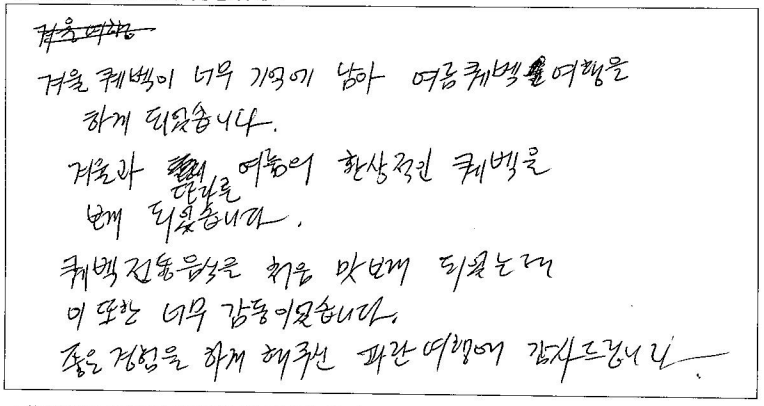 겨울여행
겨울 퀘벡이 너무 기억에 남아 여름퀘벡 여행을
하게 되었습니다.
겨울과 여름의 환상적인 퀘벡을
또다른
보게 되었습니다.
퀘벡전통음식을 처음 맛보게 되었는데
이 또한 너무 감동이었습니다.
좋은 경험을 하게 해주신 파란여행에 감사드립니다.